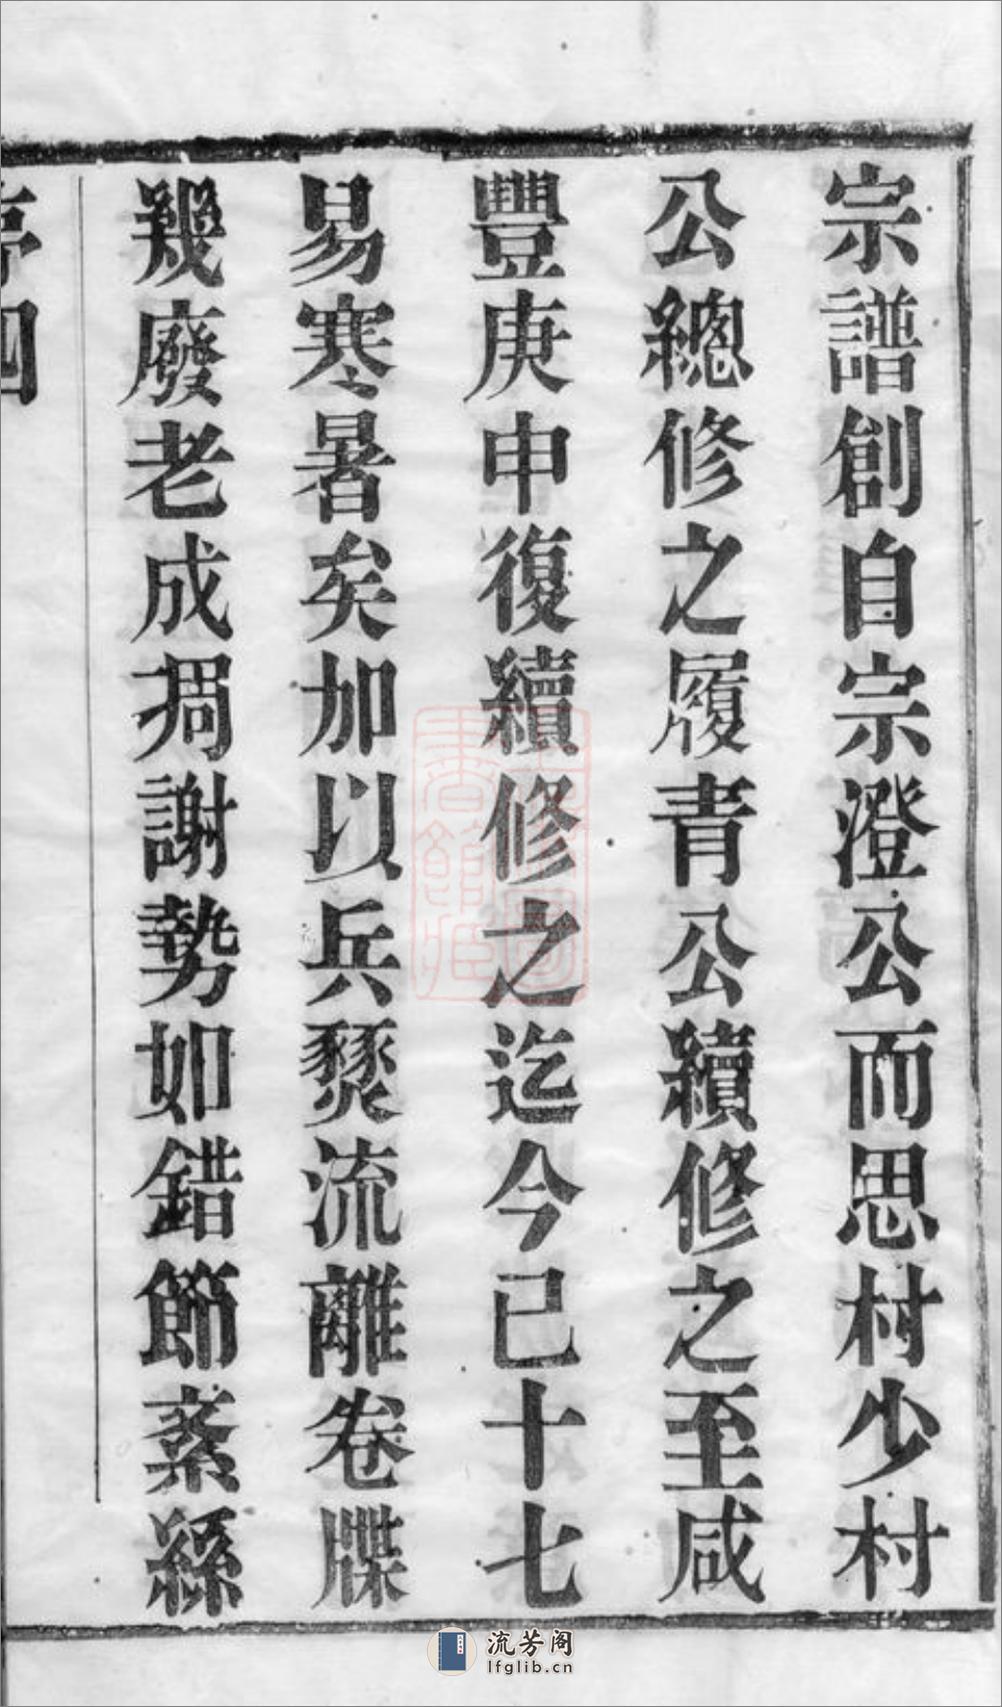 宗譜創自宗澄公而思村少村
公總修之履青公續修之至咸
豐庚申復續修之迄今已十七
易寒暑矣加以兵燹流離卷牒
幾廢老成凋謝勢如錯節紊絲
序四
流芳阁
lfglib.cn